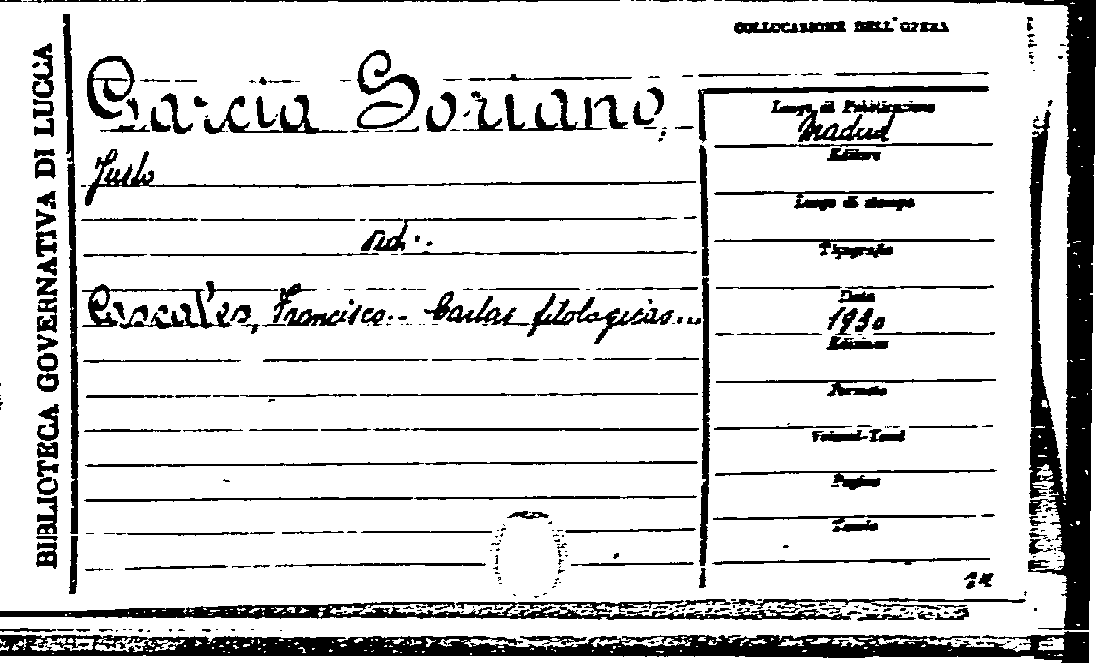 BIBLIOTECA GOVERNATIVA DI LUCCA
COLLOCAZIONE DELL'OPERA
Garcia Soriano,
Justo
ved:.
Cascales, Francisco.. Cartas filologicas...
Luogo di Pubblicazione
Madrid
Editore
Luogo di stampa
Tipografia
Data
1930
Edizione
Formato
Volumi-Tomi
Pagine
Tavole